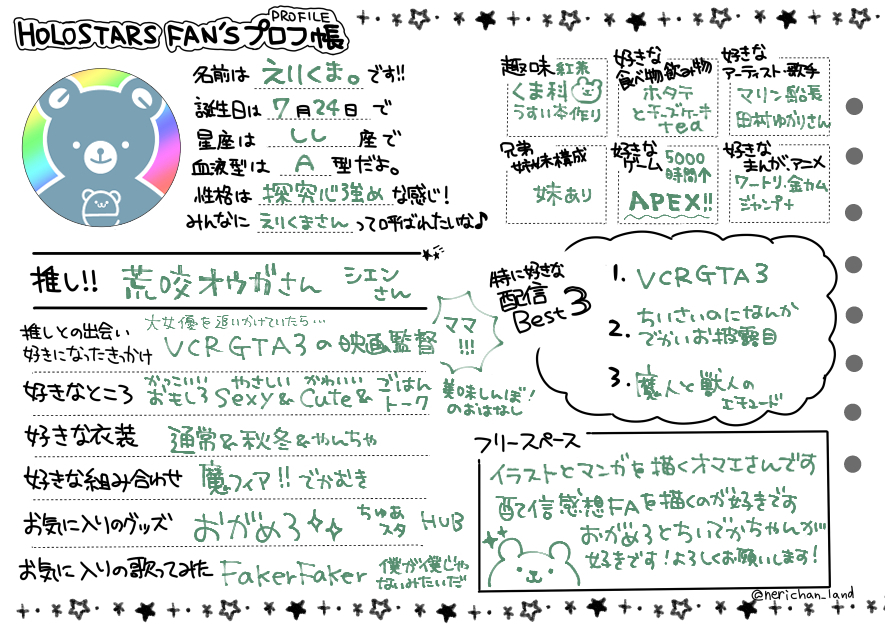 PROFILE
HOLOSTARS FAN'Sプロフ帳
名前は えりくま。です!!
誕生日は 7月24日 で
星座は しし 座で
血液型は A 型だよ。
性格は 探究心強め な感じ!
みんなに えりくまさん って呼ばれたいな♪
趣味 紅茶
くま科
うすい本作り
好きな
食べ物飲み物
ホタテ
とチーズケーキ
tea
好きな
アーティスト・歌手
マリン船長
田村ゆかりさん
兄弟
姉妹構成
妹あり
好きな
ゲーム 5000
時間↑
APEX!!
好きな
まんが、アニメ
ワートリ・金カム
ジャンプ+
推し!! 荒咬オウガさん シエン
さん
推しとの出会い
好きになったきっかけ
大女優を追いかけていたら…
VCRGTA3の映画監督
ママ
!!!
好きなところ
かっこいい やさしい かわいい ごはん
おもしろ Sexy & Cute & トーク
美味しんぼ!
のおはなし
好きな衣装 通常&秋冬&やんちゃ
好きな組み合わせ 魔フィア!! でかむき
お気に入りのグッズ おがめろ ちゅあ
スタ HUB
お気に入りの歌ってみた FakerFaker 僕が僕じゃ
ないみたいだ
特に好きな
配信
Best 3
1. VCRGTA3
2. ちいさいのになんか
でかいお披露目
3. 魔人と獣人の
エチュード
フリースペース
イラストとマンガを描くオマエさんです
配信感想FAを描くのが好きです
おがめろとちいでかちゃんが
好きです!よろしくお願いします!
@nerichan_land